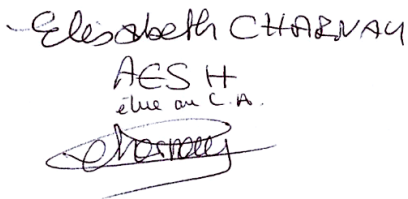 - Elisabeth CHARNAY
AESH
élue au C.A.
Charnay